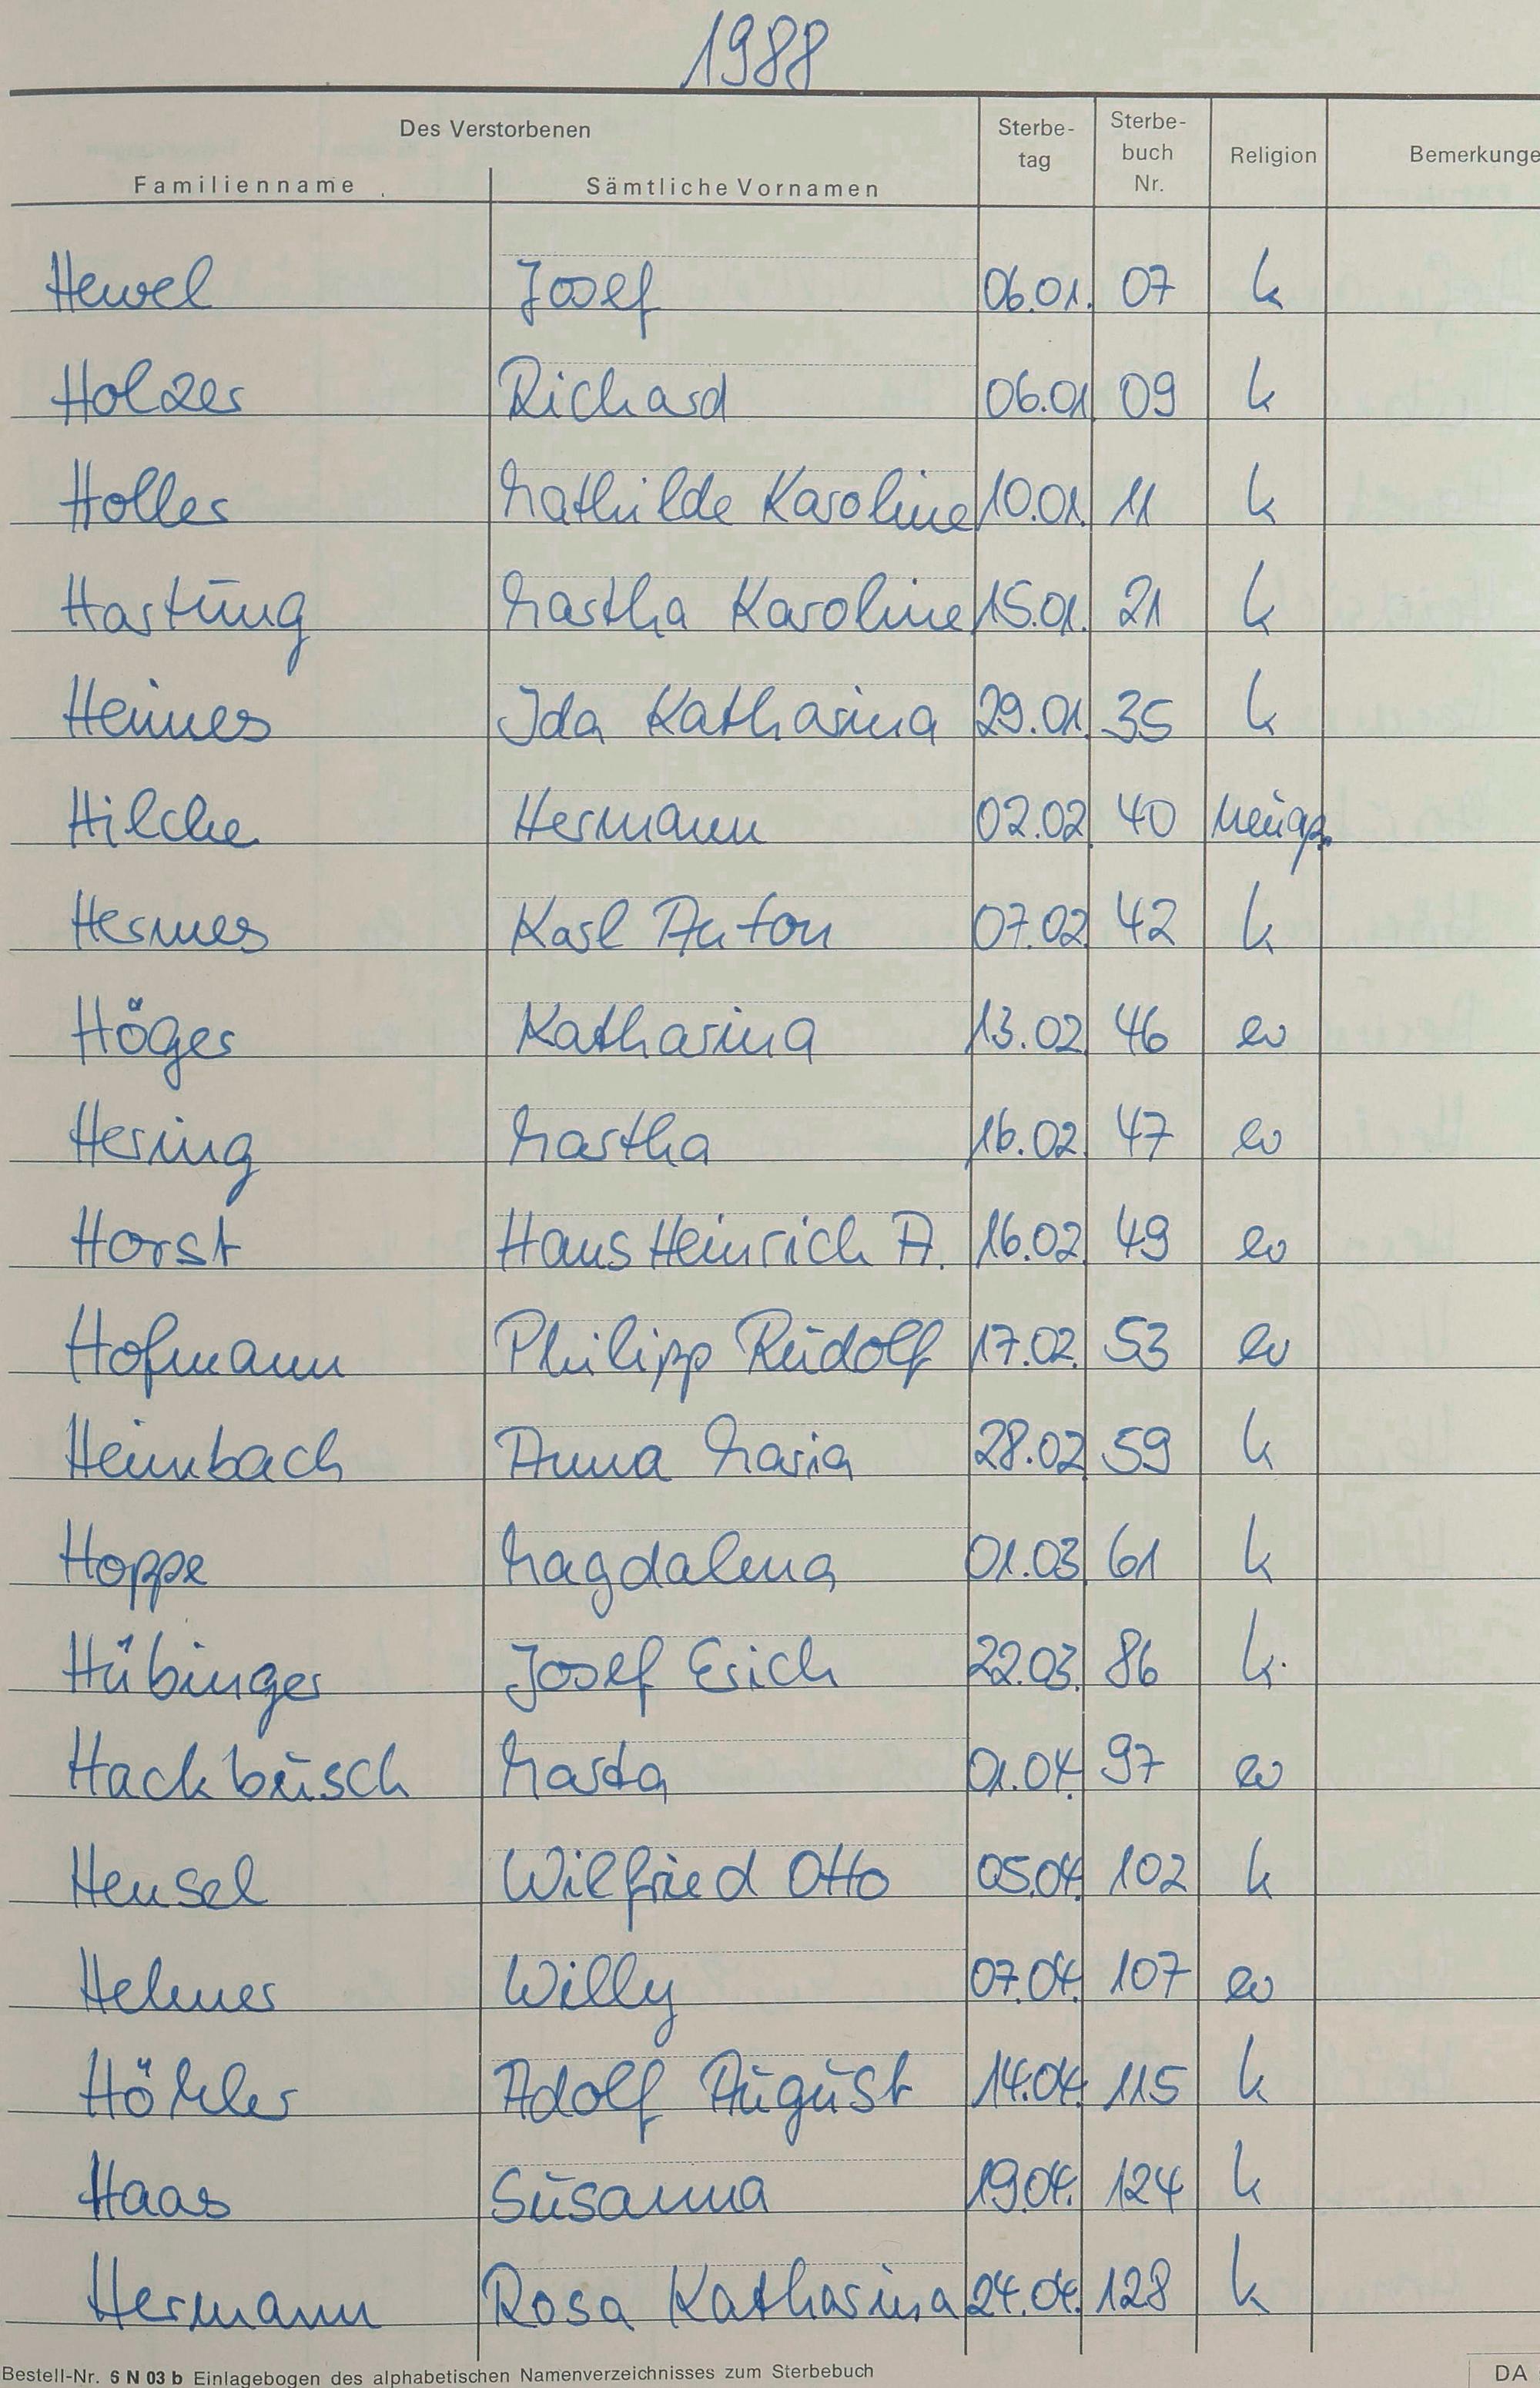 1988
Des Verstorbenen
Familienname Sämtliche Vornamen Sterbe-tag Sterbe-buch Nr. Religion Bemerkunge
Hewel Josef 06.01. 07 k
Holzer Richard 06.01. 09 k
Holler Mathilde Karoline 10.01. 11 k
Hartung Martha Karoline 15.01. 21 k
Hennes Ida Katharina 29.01. 35 k
Hilche Hermann 02.02. 40 neuap.
Hermes Karl Anton 07.02. 42 k
Höger Katharina 13.02. 46 ev
Hering Martha 16.02. 47 ev
Horst Hans Heinrich A. 16.02. 49 ev
Hofmann Philipp Rudolf 17.02. 53 ev
Heimbach Anna Maria 28.02. 59 k
Hoppe Magdalena 01.03. 61 k
Hübinger Josef Erich 22.03. 86 k.
Hackbusch Marta 01.04. 97 ev
Hensel Wilfried Otto 05.04. 102 k
Helmer Willy 07.04. 107 ev
Höhler Adolf August 14.04. 115 k
Haas Susanna 19.04. 124 k
Hermann Rosa Katharina 24.04. 128 k
Bestell-Nr. 6 N 03 b Einlagebogen des alphabetischen Namenverzeichnisses zum Sterbebuch DA